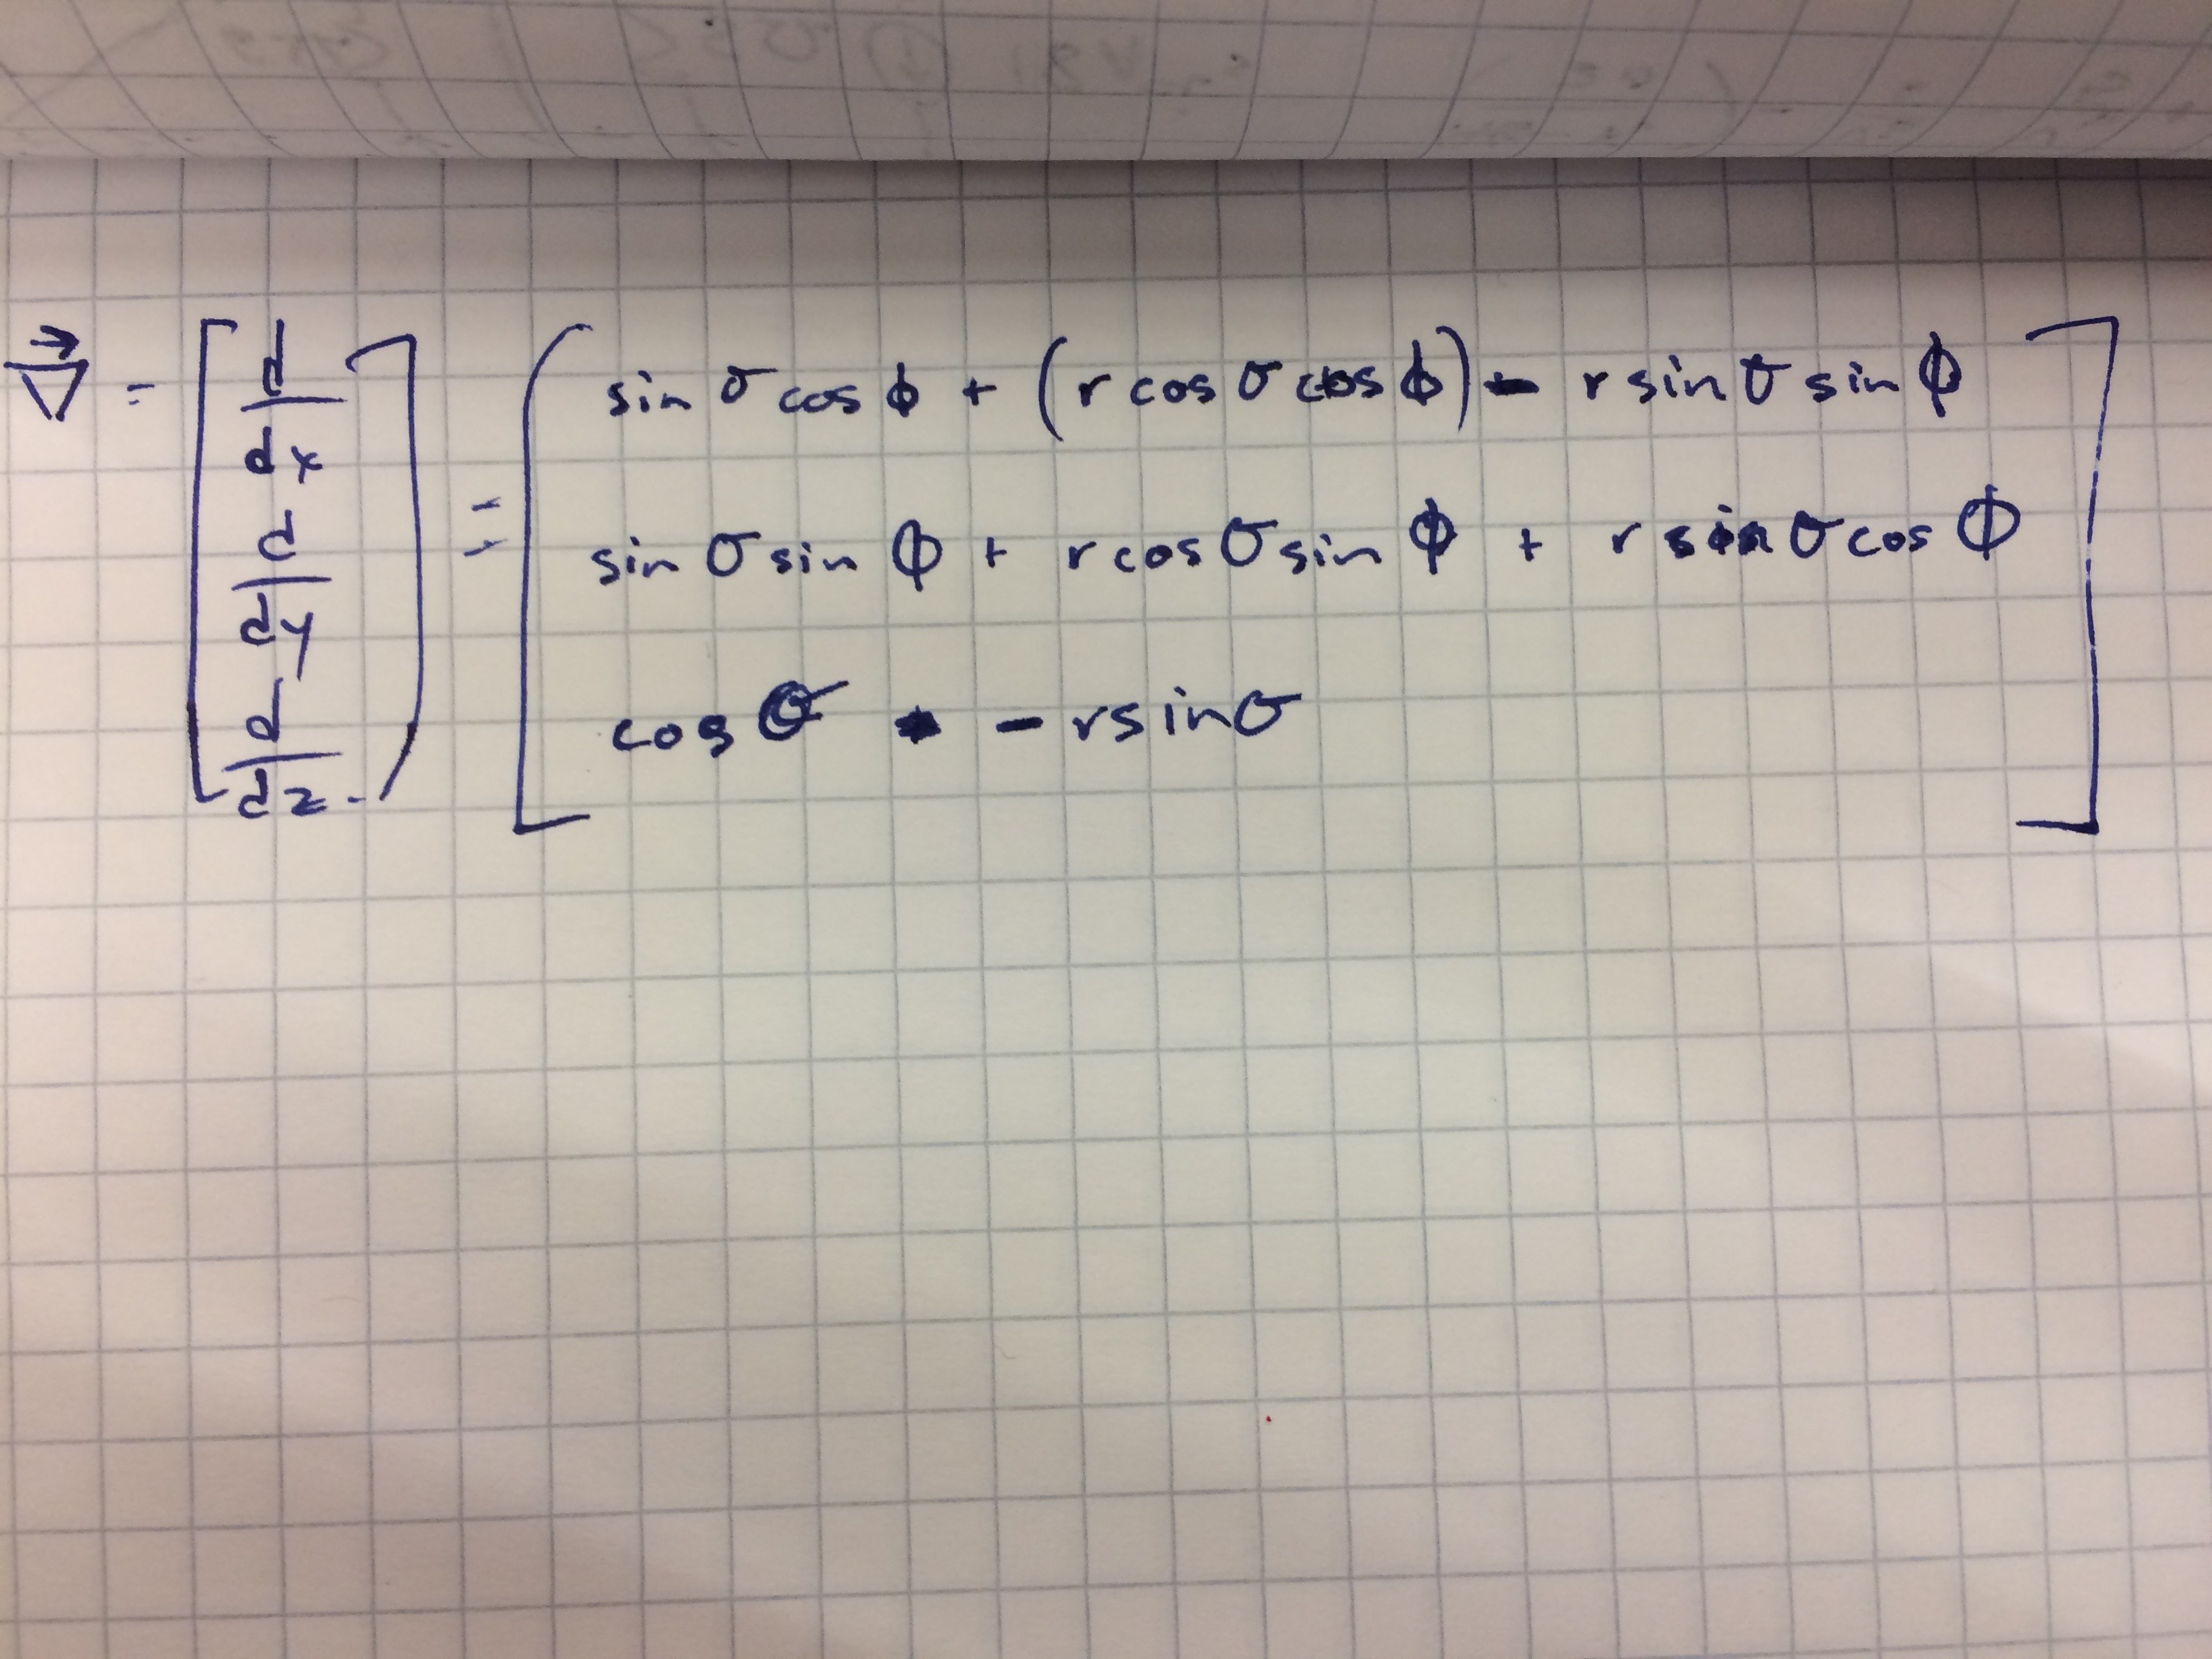 ∇⃗ = [d/dx d/dy d/dz] = [
sin σ cos ϕ + (r cos σ cos ϕ) - r sin σ sin ϕ
sin σ sin ϕ + r cos σ sin ϕ + r sin σ cos ϕ
cos σ - r sin σ
]